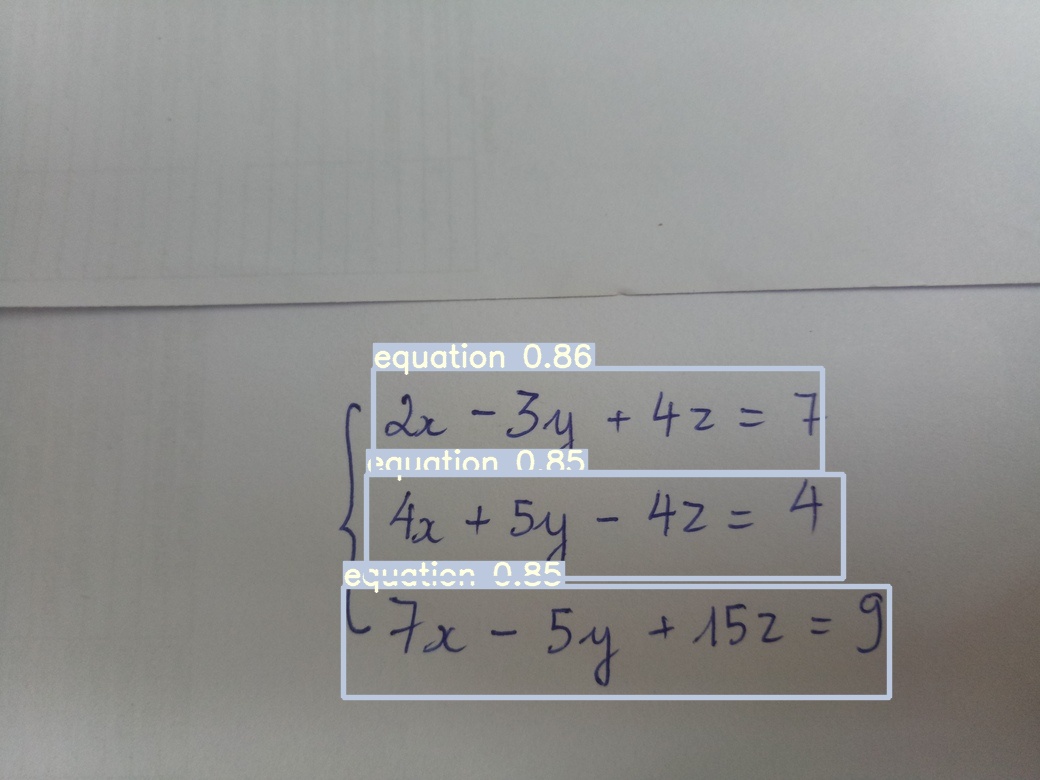 equation 0.86
2x - 3y + 4z = 7
equation 0.85
4x + 5y - 4z = 4
equation 0.85
7x - 5y + 15z = 9